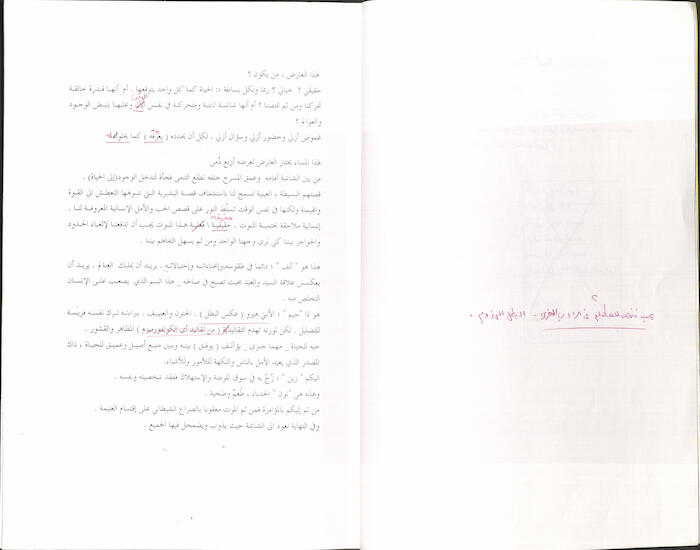 هذا العارض ، من يكون ؟
حقيقي ؟ خيالي ؟ ربما وبكل بساطة : الحياة كما كل واحد يتوقعها . أم أنها قدرة خالقة
تحركنا ومن ثم تمتصنا ؟ أم أنها شاشة ثابتة ومتحركة في نفس الوقت وعليها ينبض الوجود
والعوالم ؟
غموض أزلي وحضور أزلي وسؤال أزلي . لكل أن يحدده ( يعرّفه ) كما يحلو له
لهذا المساء يختار العارض لعرضه أربع دُمى
من بين الشاشة أمامه وعمق المسرح خلفه تطلع الدمى فجأة لتدخل الوجود (إلى الحياة) .
قصتهم البسيطة ، العينية تسمح لنا باستشفاف قصة البشرية التي شوهها التعطش الى القوة
والهيمنة ولكنها في نفس الوقت تسلّط النور على قصص الحب والأمل الإنسانية المعروفة لنا .
إنسانية ملاحقة بحتمية الموت . حقيقية \ فعلية هذا الموت يجب أن تدفعنا لإلغاء الحدود
حقيقة
والحواجز بيننا كي نرى وجهنا الواحد ومن ثم يسهل التفاهم بيننا .
هذا هو " ألف " ؛ دائما في طقوسه وإنحناءاته وإحتيالاته . يريد أن يملك العالم . يريد أن
يعكس علاقة السيد والعبد بحيث تصبح في صالحه _ هذا السم الذي يصعب على الإنسان
التخلص منه .
هو ذا "جيم" ؛ الأنتي هيرو ( عكس البطل ) . الحنون والعنيف . ببراءته ترك نفسه فريسة
للتضليل . لكن ثورته تهدم التقاليدية ( من تقاليد أي الكونفورميزم ) المظاهر والقشور .
حبه للحياة _ مهما جرى _ يؤالف ( يوفق ) بينه وبين منبع أصيل وعميق للحياة ، ذاك
المصدر الذي يعيد الأمل بالناس والنكهة للأمور وللأشياء.
اليكم " زين " ؛ زُجّ به في سوق الموضة والإستهلاك ففقد شخصيته ونفسه .
وهذه هي "نون" الحدباء ، طُعمٌ وضحية .
من ثم إليكم بالمؤامرة فمن ثم الموت معقوبا بالصراع الشيطاني على إقتسام الغنيمة .
وفي النهاية نعود الى الشاشة حيث يذوب ويضمحل فيها الجميع .
؟
البطل المهزوم .